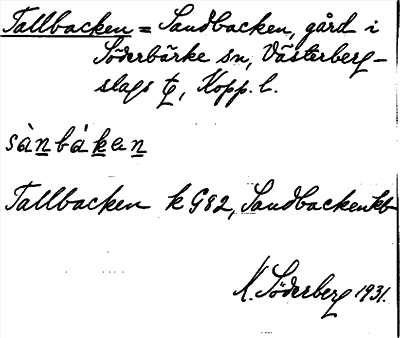 Tallbacken = Sandbacken, gård i
Söderbärke sn, Västerberg-
slags tg, Kopp. l.
sànbákan
Tallbacken k G82, Sandbacken kb
K. Söderberg 1931.